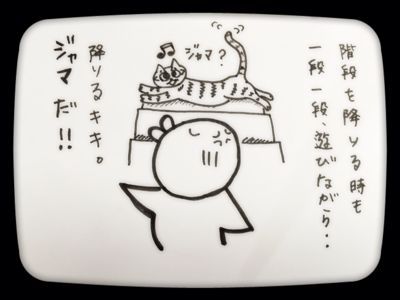 階段を降りる時も
一段一段、遊びながら・・
ジャマ?
降りるキキ。
ジャマだ!!